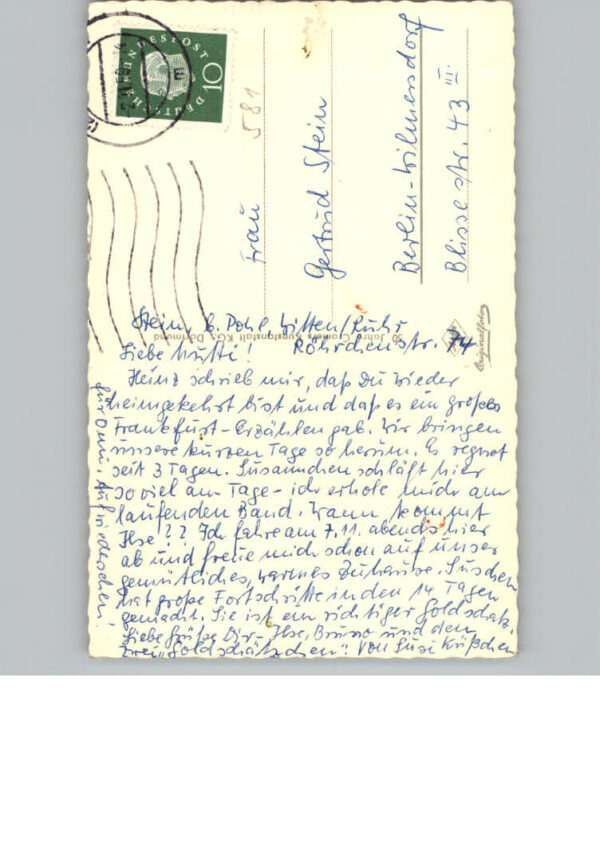 DEUTSCHE BUNDESPOST
10
581
Frau
Gertrud Stein
Berlin-Wilmersdorf
Blisse str. 43 III.
Cramers Kunstanstalt KG., Dortmund
Originalfoto
Stein, b. Pohl Witten/Ruhr
Röhrchenstr. 74
Liebe Mutti!
Heinz schrieb mir, daß Du wieder
heimgekehrt bist und daß es ein großes
Frankfurt-Erzählen gab. Wir bringen
unsere kurzen Tage so herum. Es regnet
seit 3 Tagen. Susannchen schläft hier
so viel am Tage - ich erhole mich am
laufenden Band. Wann kommt
Ilse?? Ich fahre am 7.11. abends hier
ab und freue mich schon auf unser
gemütliches, warmes Zuhause. Suschen
hat große Fortschritte in den 14 Tagen
gemacht. Sie ist ein richtiger Goldschatz.
Liebe Grüße Dir - Ilse, Bruno und den
drei "Goldschätzchen". Von Susi Küßchen
für Omi. Auf wiedersehen!